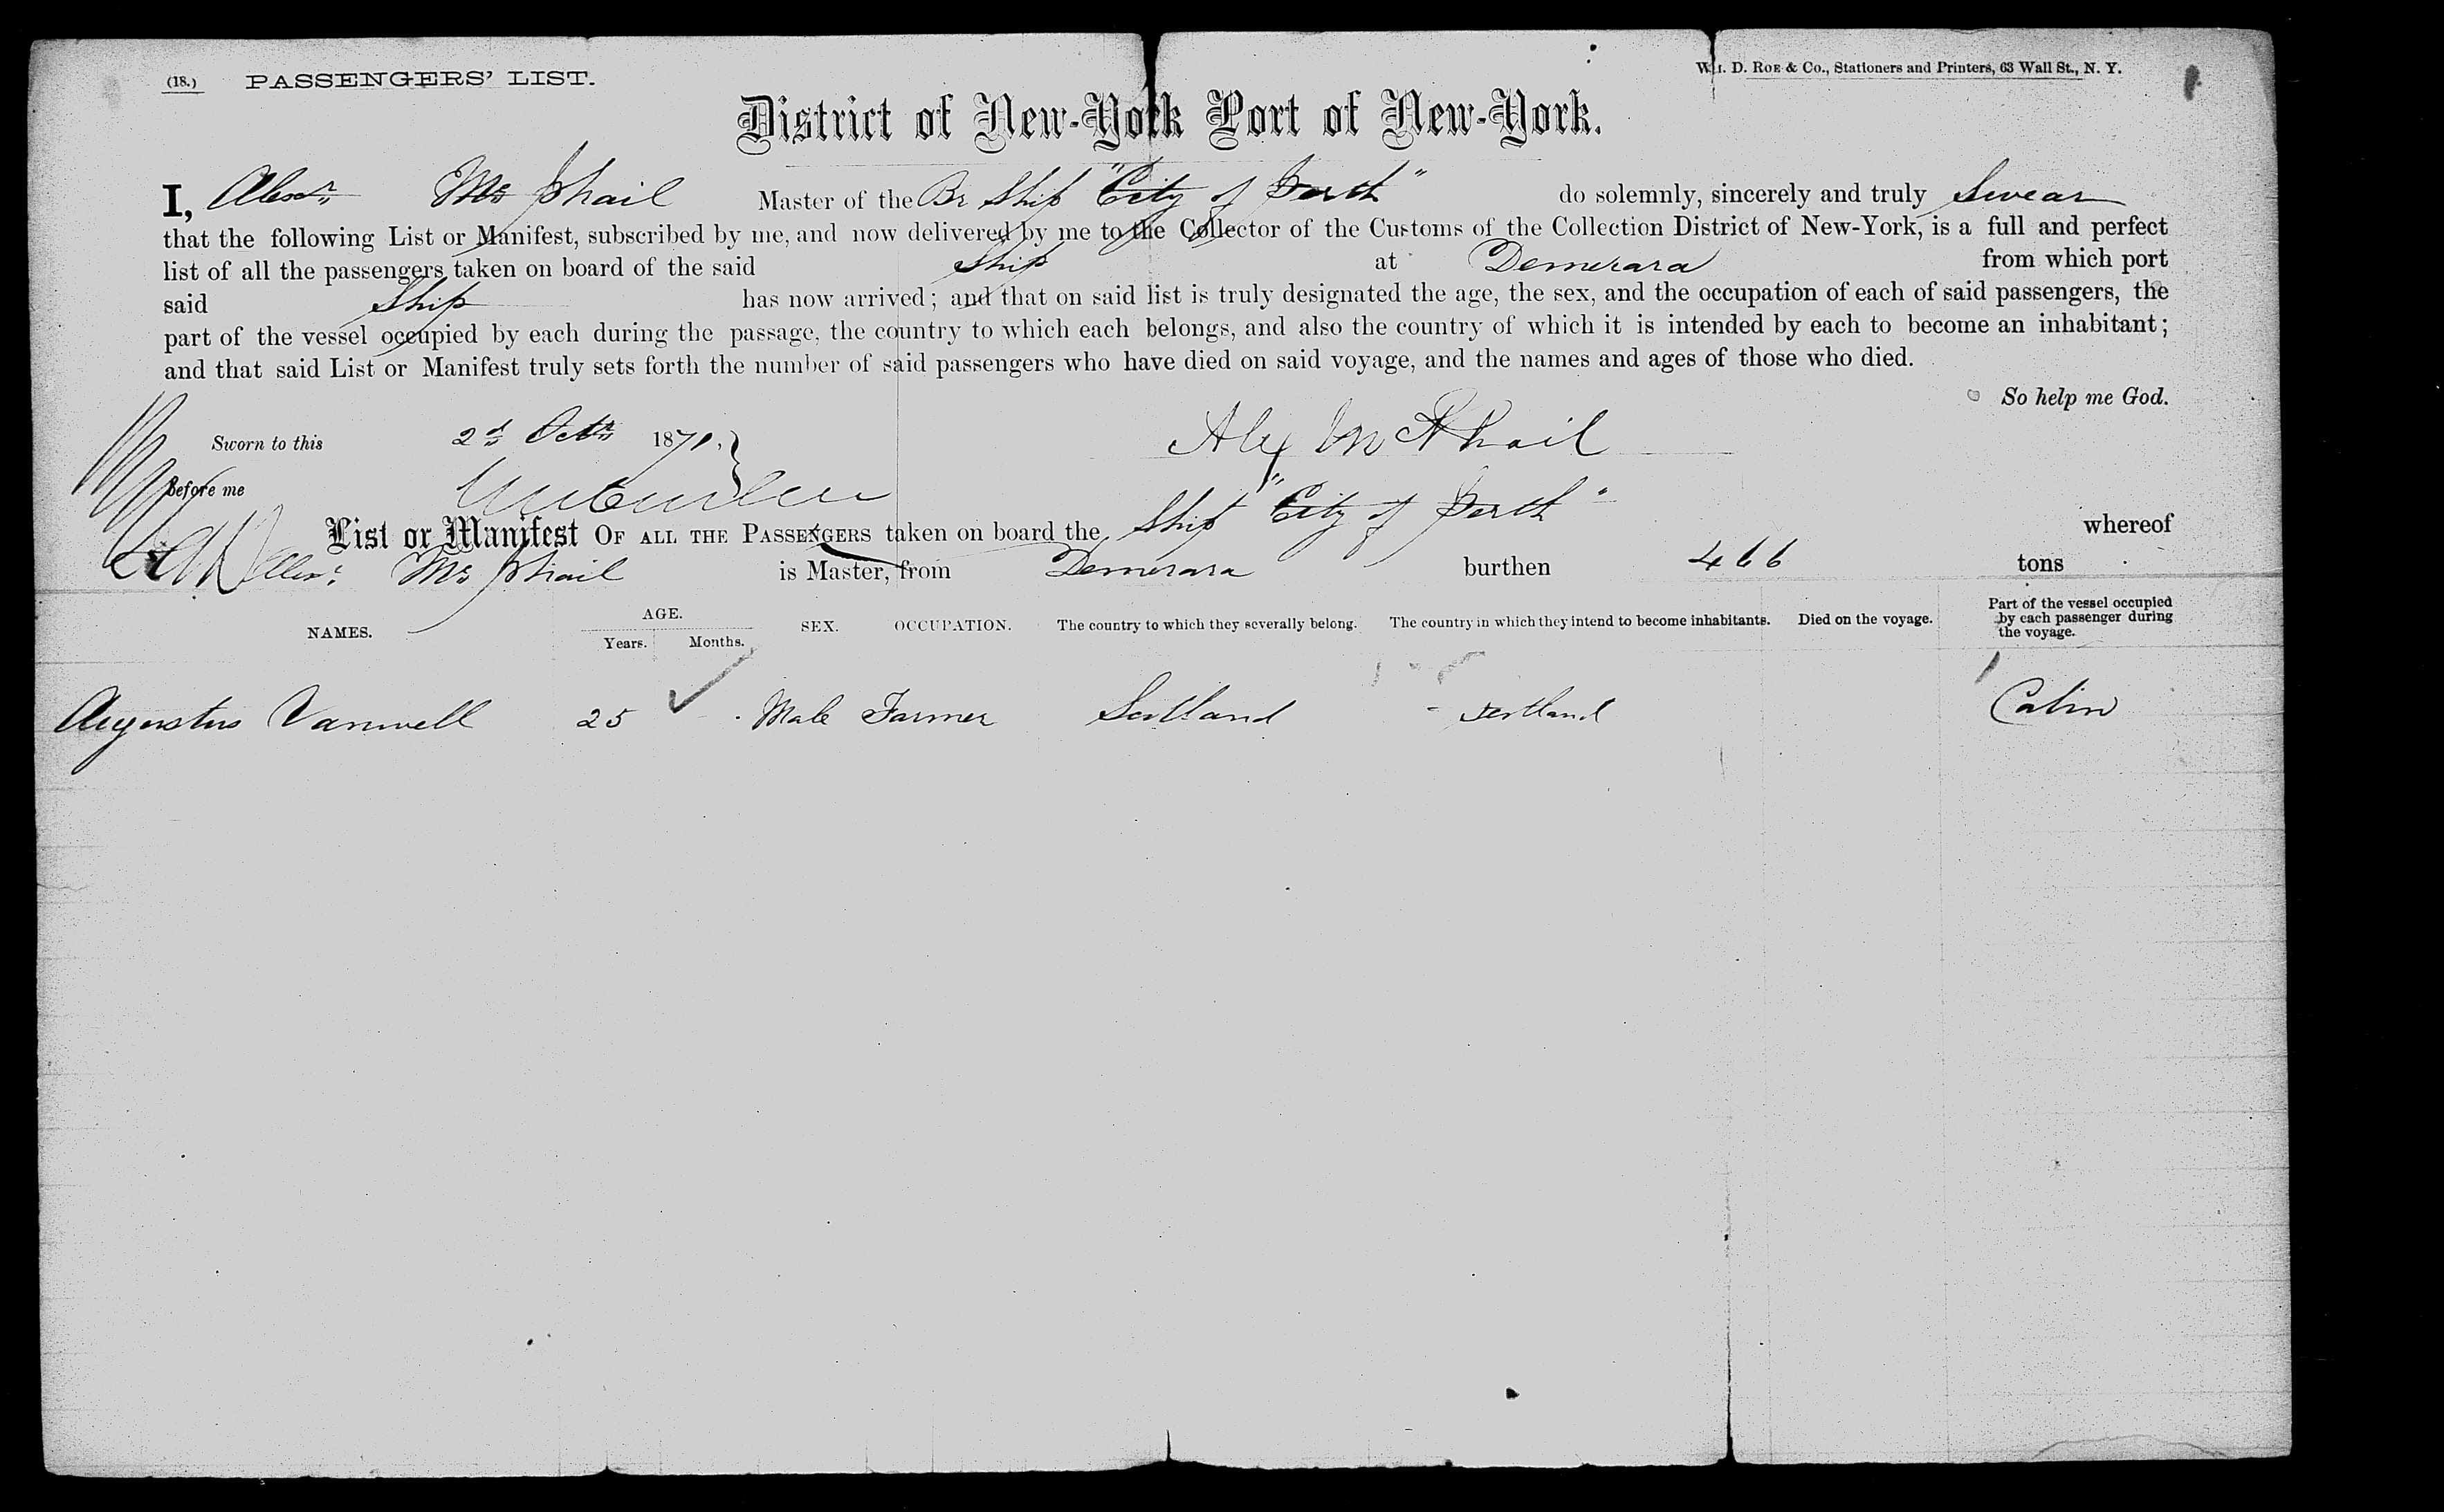 (18.) PASSENGERS' LIST.
Wm. D. Roe & Co., Stationers and Printers, 63 Wall St., N. Y.
District of New-York Port of New-York.
I, Alexr. Mc Phail Master of the Br Ship "City of Perth" do solemnly, sincerely and truly Swear
that the following List or Manifest, subscribed by me, and now delivered by me to the Collector of the Customs of the Collection District of New-York, is a full and perfect
list of all the passengers taken on board of the said Ship at Demerara from which port
said Ship has now arrived; and that on said list is truly designated the age, the sex, and the occupation of each of said passengers, the
part of the vessel occupied by each during the passage, the country to which each belongs, and also the country of which it is intended by each to become an inhabitant;
and that said List or Manifest truly sets forth the number of said passengers who have died on said voyage, and the names and ages of those who died.
So help me God.
Sworn to this 2d Octr 1871. Alex McPhail
Before me
List or Manifest OF ALL THE PASSENGERS taken on board the Ship "City of Perth" whereof
Alexr. Mc Phail is Master, from Demerara burthen 466 tons
NAMES. AGE. Years. Months. SEX. OCCUPATION. The country to which they severally belong. The country in which they intend to become inhabitants. Died on the voyage. Part of the vessel occupied by each passenger during the voyage.
Augustus Vanwell 25 Male Farmer Scotland Scotland Cabin